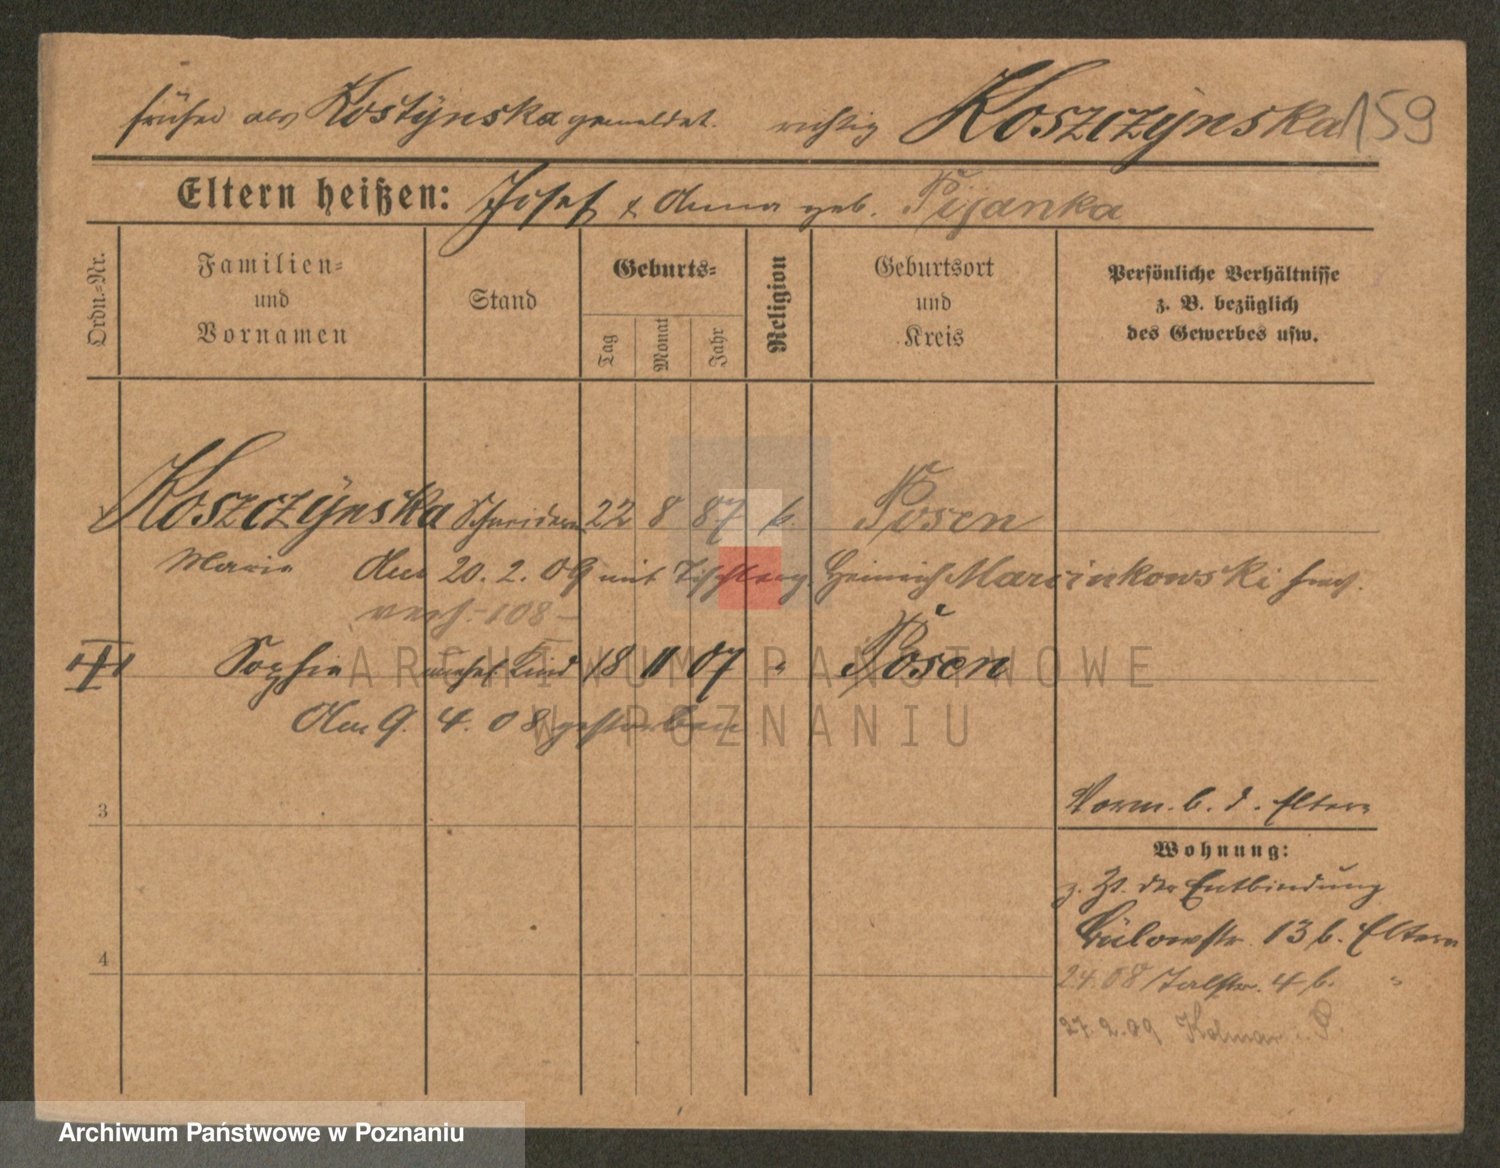 früher als Kostÿnska gemeldet. richtig Koszczÿnska 159
Eltern heißen: Josef & Anna geb. Pijanka
Ordn.-Nr.
Familien-
und
Vornamen
Stand
Geburts-
Tag
Monat
Jahr
Religion
Geburtsort
und
Kreis
Persönliche Verhältnisse
z. B. bezüglich
des Gewerbes usw.
Koszczÿnska Schneiderin 22 8 87 k. Posen
Marie Am 20. 2. 09 mit Heinrich Marcinkowski
verh. 108
Sophie unehel. Kind 18 11 07 " Posen
Am 9. 4. 08 gestorben
3
Vorm. b. d. Eltern
Wohnung:
z. Zt. der Entbindung
Bülowstr. 13 b. Eltern
4
24.08 Talstr. 4 b. "
27.2.09 Kolmar i. P.
ARCHIWUM PAŃSTWOWE
W POZNANIU
Archiwum Państwowe w Poznaniu